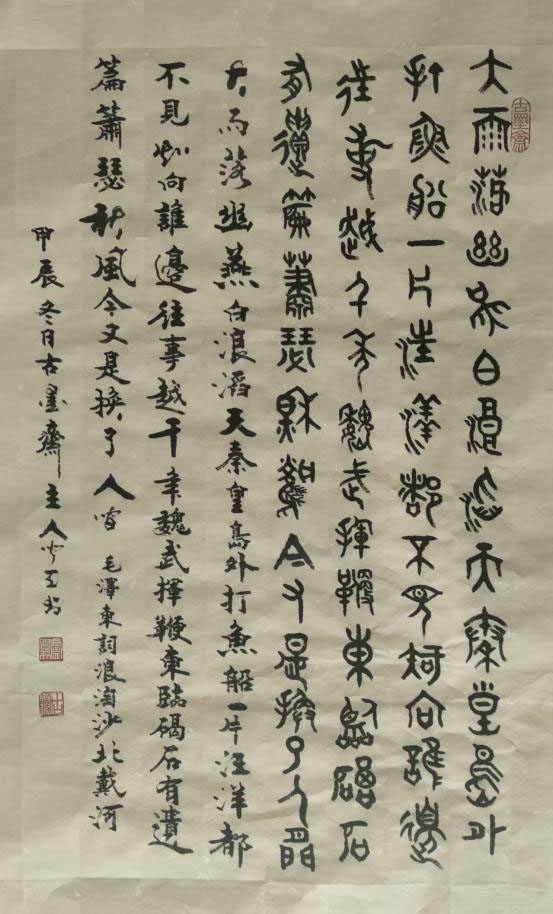 古墨齋
大雨落幽燕白浪滔天秦皇島外
打魚船一片汪洋都不見知向誰邊
往事越千年魏武揮鞭東臨碣石
有遺篇蕭瑟秋風今又是換了人間
大雨落幽燕白浪滔天秦皇島外打魚船一片汪洋都
不見知向誰邊往事越千年魏武揮鞭東臨碣石有遺
篇蕭瑟秋風今又是換了人間 毛澤東詞浪淘沙北戴河
甲辰冬日古墨齋主人